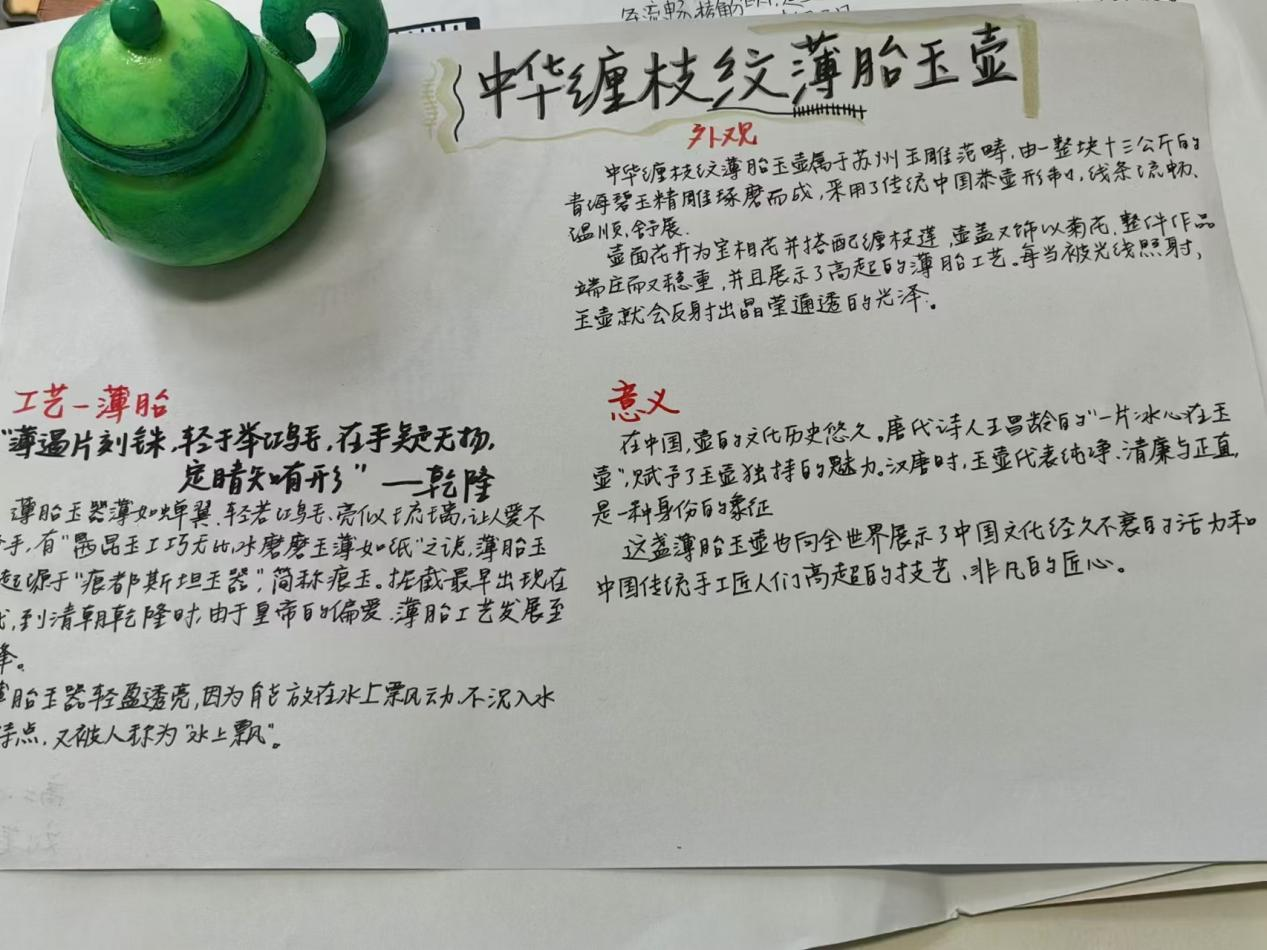 中华缠枝纹薄胎玉壶
外观
中华缠枝纹薄胎玉壶属于苏州玉雕范畴,由一整块十三公斤的
青海碧玉精雕琢磨而成,采用了传统中国茶壶形制,线条流畅、
温顺,舒展.
壶面花卉为宝相花并搭配缠枝莲,壶盖又饰以菊花,整件作品
端庄而又稳重,并且展示了高超的薄胎工艺。每当被光线照射,
玉壶就会反射出晶莹通透的光泽.。
工艺一薄胎
"薄遍片刻铢,轻于举鸿毛,在手疑无物,
定睛知有形" ——乾隆
薄胎玉器薄如蝉翼,轻若鸿毛、亮似琉璃,让人爱不
手,有"昆玉工巧无比,水磨磨玉薄如纸"之说,薄胎玉
起源于"痕都斯坦玉器",简称痕玉。最早出现在
,到清朝乾隆时,由于皇帝的偏爱,薄胎工艺发展至
峰。
薄胎玉器轻盈透亮,因为能放在水上飘动,不沉入水
特点,又被人称为"水上飘"。
意义
在中国,壶的文化历史悠久。唐代诗人王昌龄的"一片冰心在玉
壶",赋予了玉壶独特的魅力。汉唐时,玉壶代表纯净、清廉与正直,
是一种身份的象征
这盏薄胎玉壶也向全世界展示了中国文化经久不衰的活力和
中国传统手工匠人们高超的技艺、非凡的匠心。